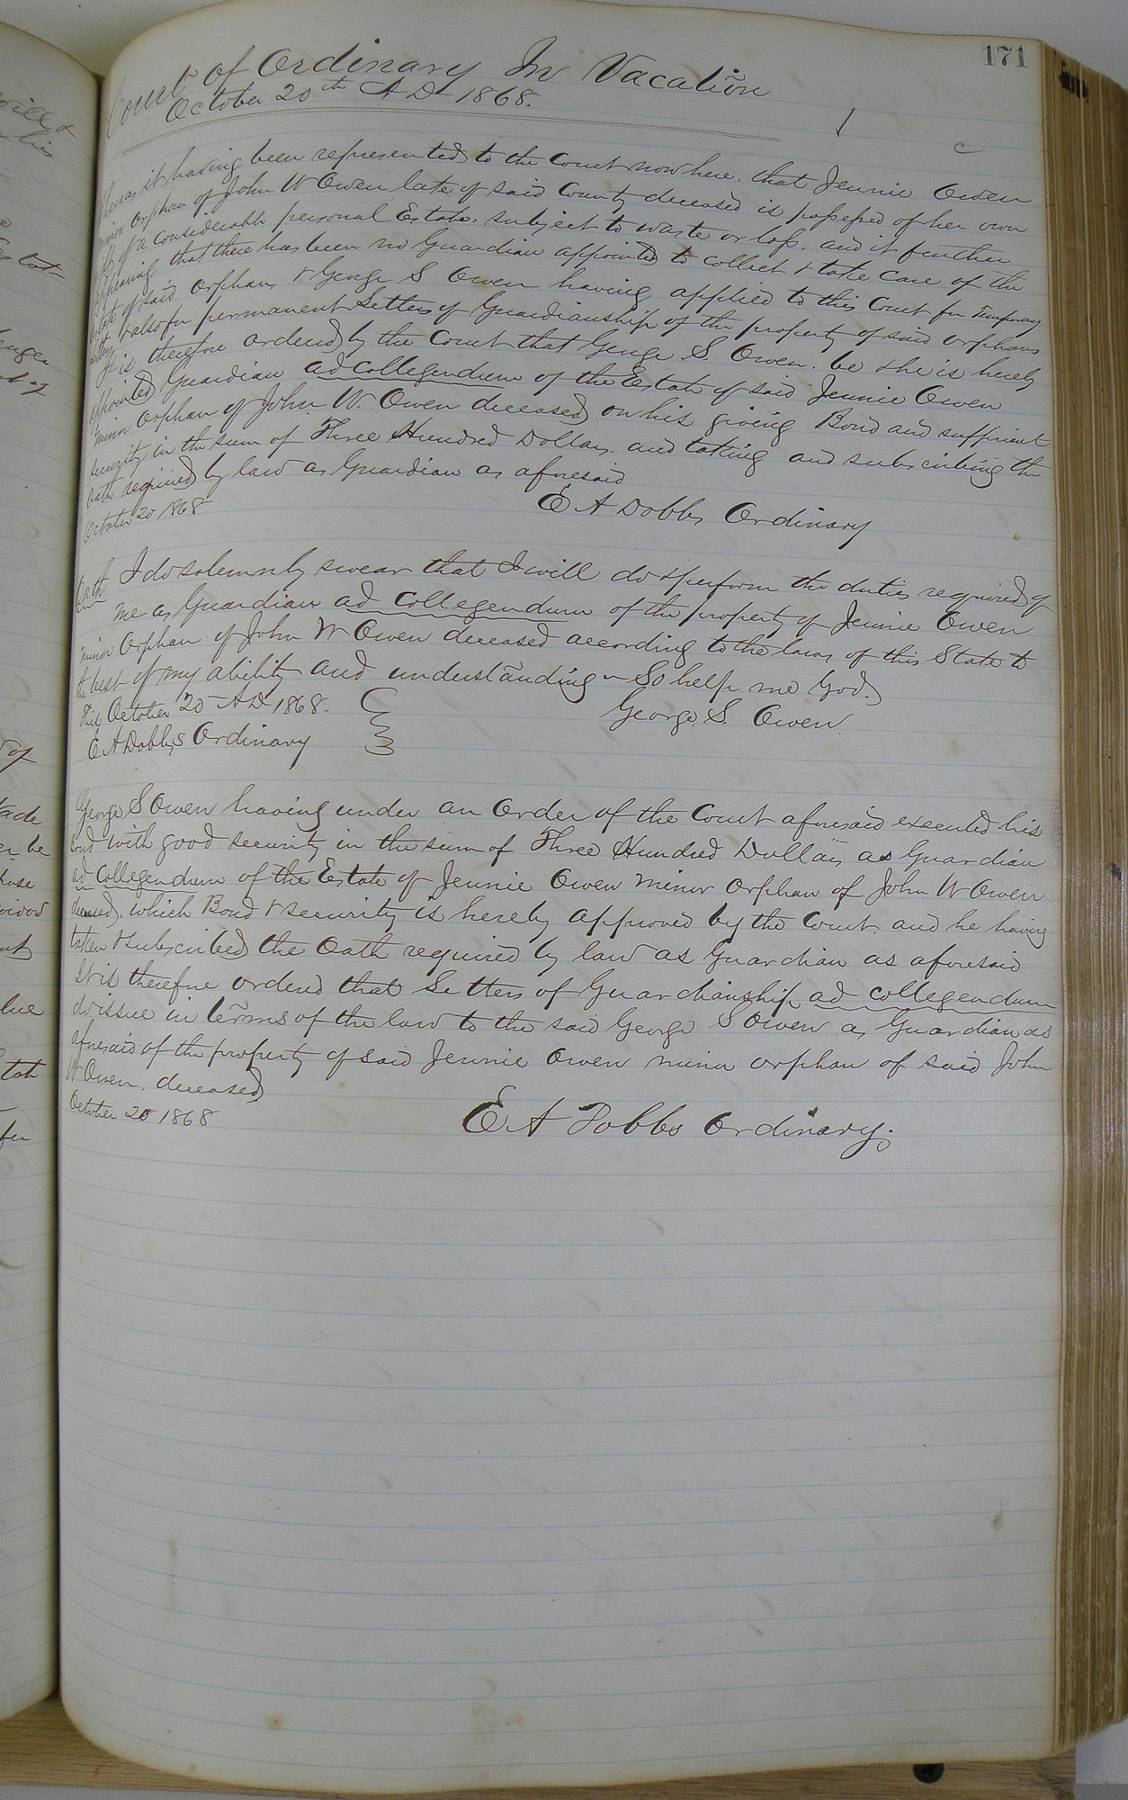 171
Court of Ordinary In Vacation
October 20th A D 1868.
Whereas it having been represented to the Court now here. that Jennie Owen
minor Orphan of John W Owen late of said County deceased is possessed of her own
right of a considerable personal Estate. subject to waste or loss. and it further
appearing that there has been no Guardian appointed to collect & take care of the
Estate of said Orphan & George S Owen having applied to this Court for Temporary
letters & also for permanent Letters of Guardianship of the property of said orphans
It is therefore ordered by the Court that George S. Owen. be & he is hereby
appointed Guardian ad collegendum of the Estate of said Jennie Owen
minor Orphan of John W. Owen deceased on his giving Bond and sufficient
security in the sum of Three Hundred Dollars. and taking and subscribing the
oath required by law as Guardian as aforesaid
October 20 1868
E A Dobbs Ordinary
Oath
I do solemnly swear that I will do & perform the duties required of
me as Guardian ad collegendum of the property of Jennie Owen
minor Orphan of John W Owen deceased according to the laws of this State to
the best of my ability and understanding - So help me God.
This October 20 AD 1868.
George. S. Owen.
E A Dobbs Ordinary
George S Owen having under an order of the Court aforesaid executed his
Bond with good security in the sum of Three Hundred Dollars as Guardian
ad Collegendum of the Estate of Jennie Owen minor orphan of John W Owen
deceased, which Bond & security is hereby approved by the Court. and he having
taken & subscribed the Oath required by law as Guardian as aforesaid
It is therefore ordered that Letters of Guardianship ad collegendum
do issue in terms of the law to the said George S Owen as Guardian as
aforesaid of the property of said Jennie Owen minor orphan of said John
W Owen. deceased
October 20 1868
E A Dobbs Ordinary.